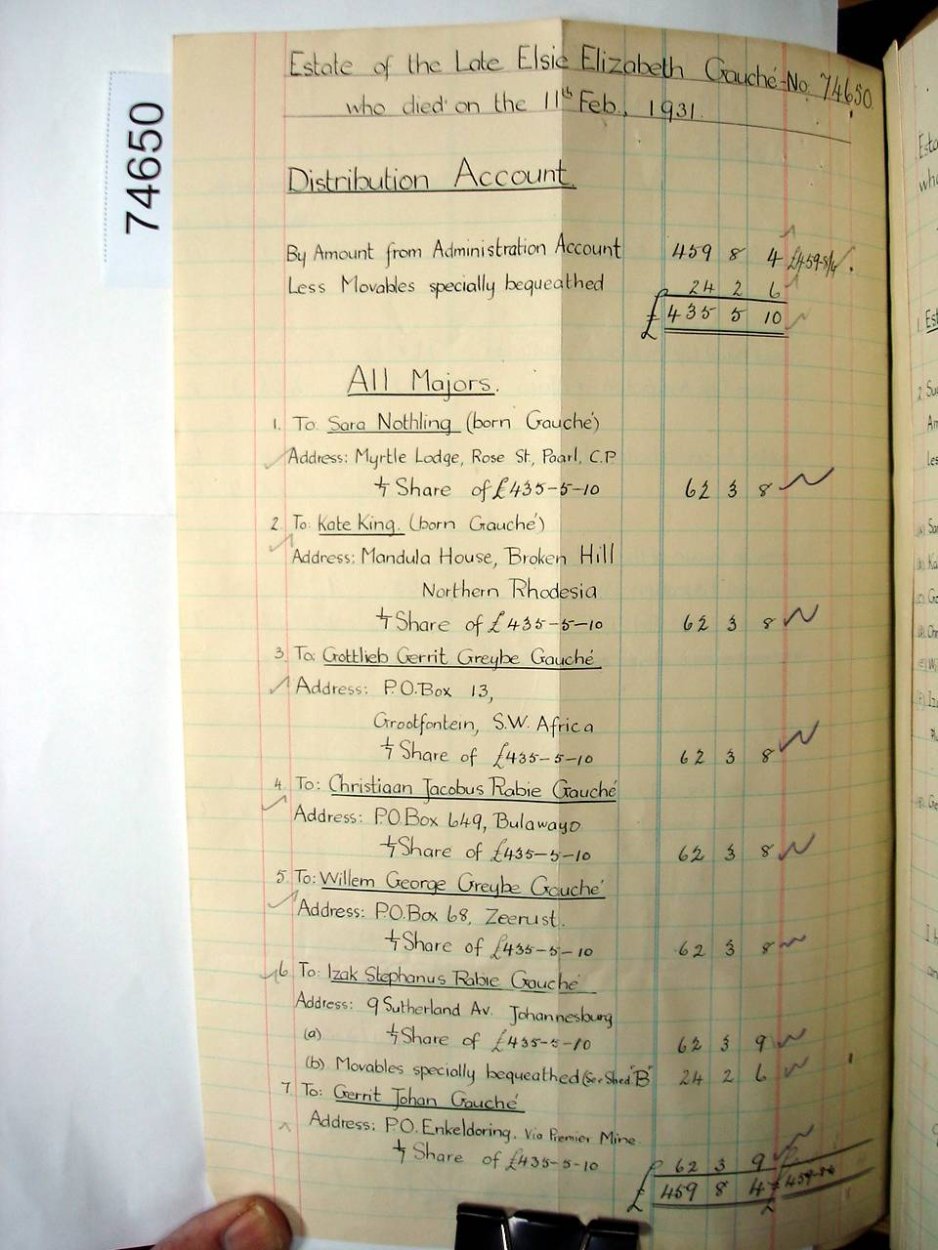 74650
Estate of the Late Elsie Elizabeth Gauché-No. 74650
who died on the 11th Feb., 1931.
Distribution Account.
By Amount from Administration Account 459 8 4 £459-8/4
Less Movables specially bequeathed 24 2 6
£ 435 5 10
All Majors.
1. To Sara Nothling (born Gauché)
Address: Myrtle Lodge, Rose St, Paarl, C.P
1/7 Share of £435-5-10 62 3 8
2. To: Kate King. (born Gauché)
Address: Mandula House, Broken Hill
Northern Rhodesia
1/7 Share of £435-5-10 62 3 8
3. To: Gottlieb Gerrit Greybe Gauché
Address: P.O.Box 13,
Grootfontein, S.W. Africa
1/7 Share of £435-5-10 62 3 8
4. To: Christiaan Jacobus Rabie Gauché
Address: P.O.Box 649, Bulawayo
1/7 Share of £435-5-10 62 3 8
5. To: Willem George Greybe Gauché
Address: P.O.Box 68, Zeerust.
1/7 Share of £435-5-10 62 3 8
6. To: Izak Stephanus Rabie Gauché
Address: 9 Sutherland Av. Johannesburg
(a) 1/7 Share of £435-5-10 62 3 9
(b) Movables specially bequeathed (See Shed. "B" 24 2 6
7 To: Gerrit Johan Gauché
Address: P.O. Enkeldoring. Via Premier Mine
1/7 Share of £435-5-10 62 3 9
£ 459 8 4 £459-8-4